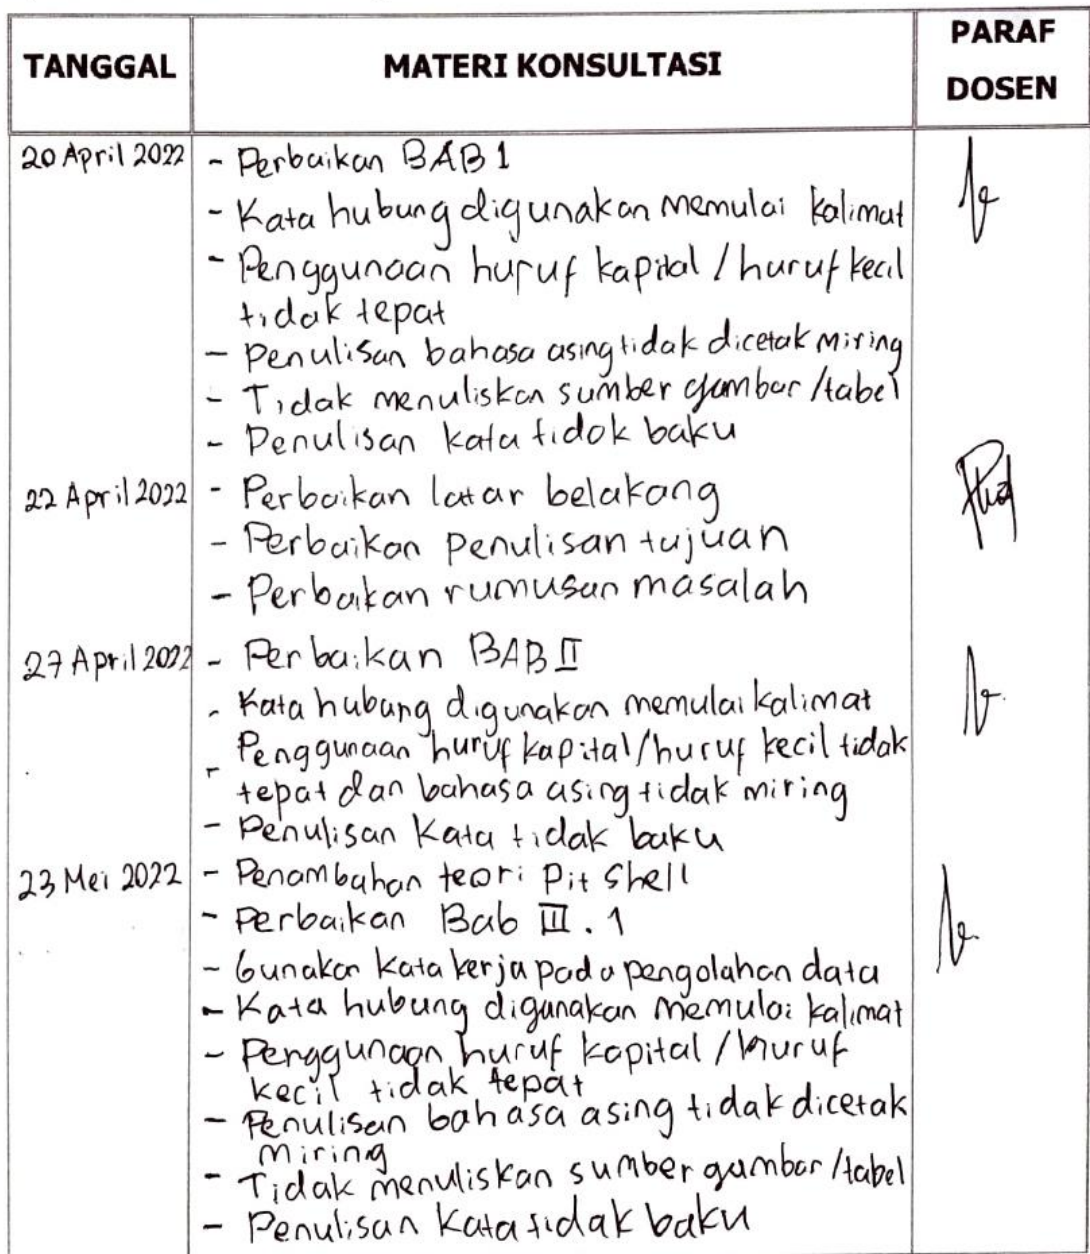 TANGGAL MATERI KONSULTASI PARAF DOSEN
20 April 2022 - Perbaikan BAB 1
- Kata hubung digunakan memulai kalimat
- Penggunaan huruf kapital / huruf kecil
tidak tepat
- Penulisan bahasa asing tidak dicetak miring
- Tidak menuliskan sumber gambar /tabel
- Penulisan kata tidak baku
22 April 2022 - Perbaikan latar belakang
- Perbaikan penulisan tujuan
- Perbaikan rumusan masalah
27 April 2022 - Perbaikan BAB II
- Kata hubung digunakan memulai kalimat
- Penggunaan huruf kapital/huruf kecil tidak
tepat dan bahasa asing tidak miring
- Penulisan Kata tidak baku
23 Mei 2022 - Penambahan teori Pit Shell
- Perbaikan Bab III.1
- Gunakan Kata kerja pada pengolahan data
- Kata hubung digunakan memulai kalimat
- Penggunaan huruf kapital / huruf
kecil tidak tepat
- Penulisan bahasa asing tidak dicetak
miring
- Tidak menuliskan sumber gambar /tabel
- Penulisan Kata tidak baku